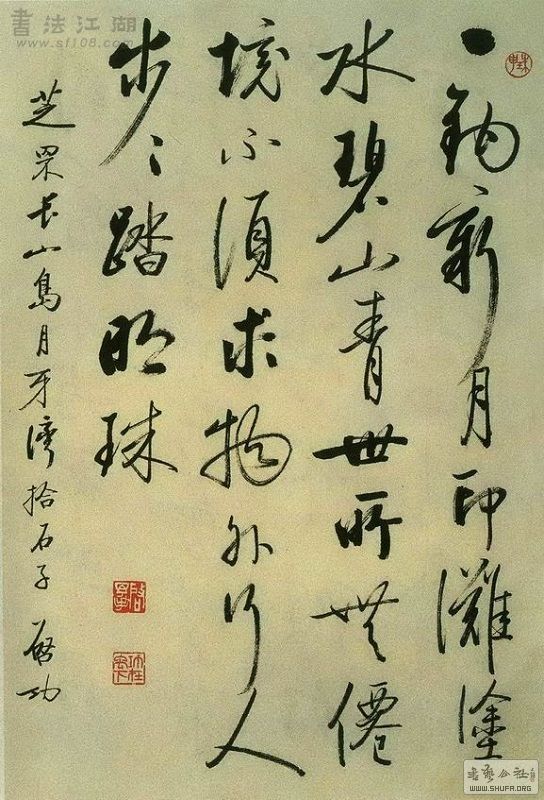 書法江湖
www.sf108.com
一鈎新月印灘塗
水碧山青世所無僊
境不須求物外行人
步々踏明珠
芝罘長山島月牙灣拾石子 啟功
書藝公社
WWW.SHUFA.ORG